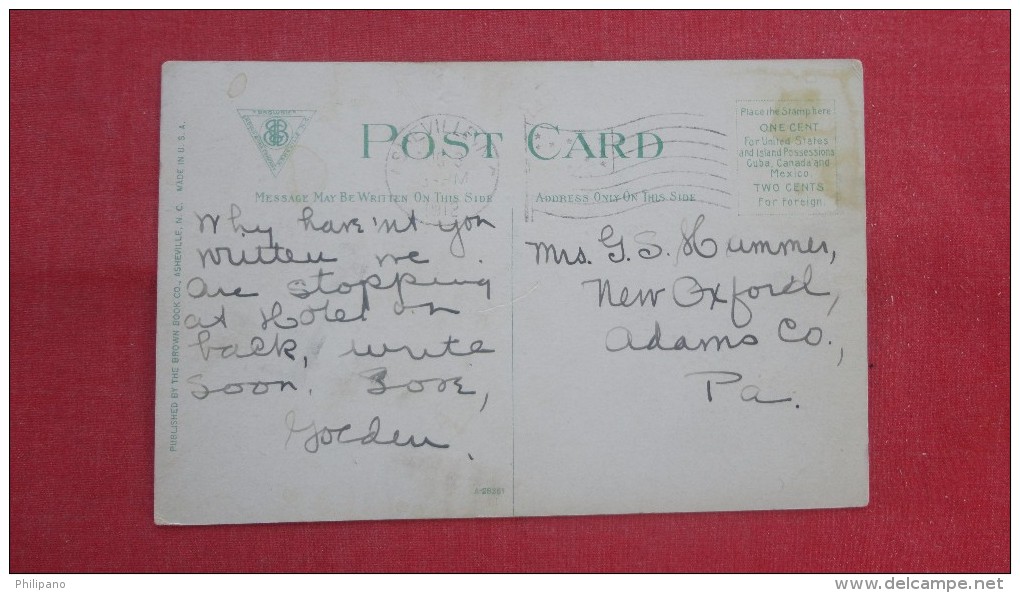 POST CARD
MESSAGE MAY BE WRITTEN ON THIS SIDE
ADDRESS ONLY ON THIS SIDE
Place the Stamp here
ONE CENT
For United States
and Island Possessions
Cuba, Canada and
Mexico
TWO CENTS
For Foreign
PUBLISHED BY THE BROWN BOOK CO., ASHEVILLE, N. C. MADE IN U.S.A.
Why have'nt you
written we
are stopping
at Hotel on
back, write
soon. Love,
Golden.
Mrs. G. S. Hummer,
New Oxford,
Adams Co.,
Pa.
Philipano
www.delcampe.net